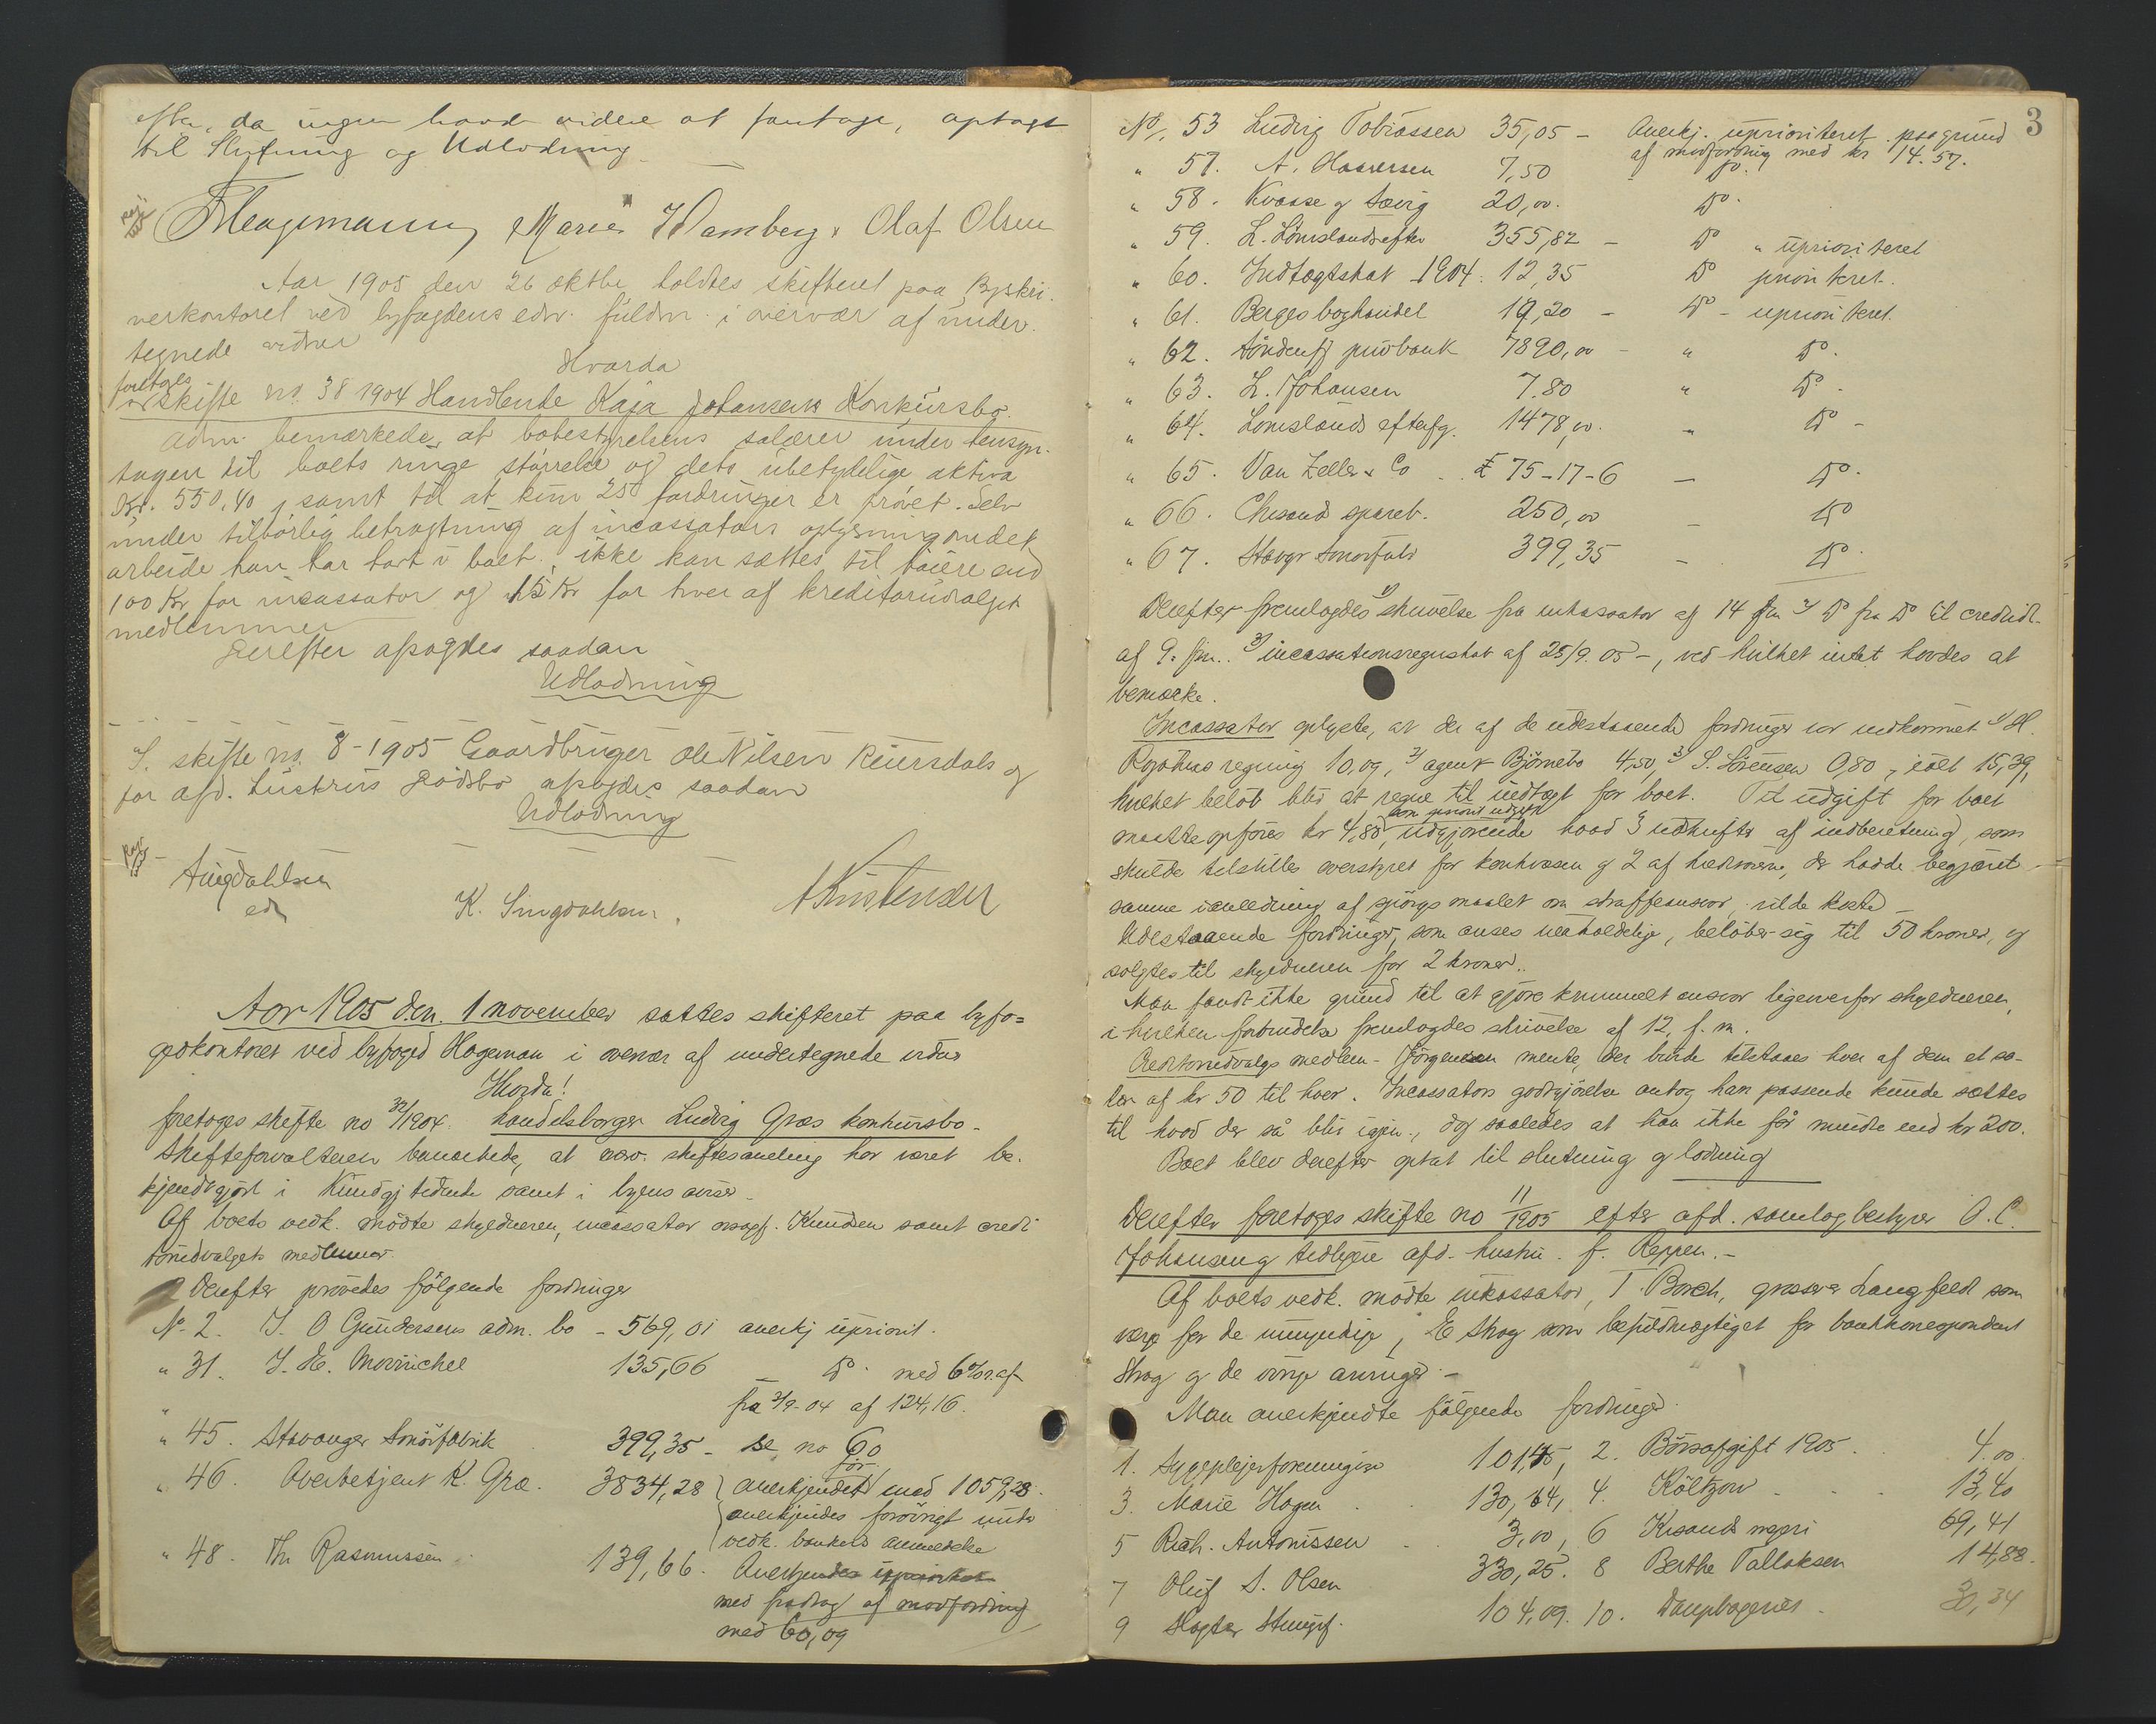 efter, da ingen havde videre at fremføre, optoges
til Slutning og Udlodning
FHagemann, Marie Wamberg, Olaf Olsen
Aar 1905 den 26 oktbr holdtes skifteret paa Byskri-
verkontoret ved byfogdens edsv. fuldm. i overvær af under-
tegnede vidner
Hvorda
foretoges
skifte no. 38 1904 Handlende Kaja Johansens Konkursbo.
Adm. bemærkede, at bobestyrelsens salærer under hensyn-
tagen til boets ringe størrelse og dets ubetydelige aktiva
Kr. 550,40, samt til at kun 25 fordringer er prøvet. Selv
under tilbørlig betragtning af incassators oplysning om det
arbeide han har havt i boet, ikke kan sættes til høiere end
100 Kr for incassator og 15 Kr for hver af kreditorudvalgets
medlemmer
Derefter afsagdes saadan
Udlodning
I skifte no. 8-1905 Gaardbruger Ole Nilsen Reiersdals og
for afd. hustrus Dødsbo afsagdes saadan
Udlodning
K. Singdahlsen. AKristensen
Aar 1905 den 1 november sattes skifteret paa byfo=
gedkontoret ved byfoged Hageman i overvær af undertegnede vidner
Hvorda!
foretoges skifte no 32/1904. handelsborger Ludvig Græs konkursbo.
Skifteforvalteren bemærkede, at nærv. skiftesamling har været be-
kjendtgjort i Kundgj tidende samt i byens aviser.
Af boets vedk. mødte skyldneren, incassator orsagf. Knudsen samt credi
torudvalgets medlemmer.
Derefter prøvedes følgende fordringer
No. 2. J. O Gundersens adm. bo - 569,01 anerkj uprioit.
" 31. J. H. 135,66 Do. med 6% r. af
fra 3/9-04 af 124,16.
" 45. Stavanger Smørfabrik 399,35 - se no 60
" 46. Overbetjent K. Græ. 3834,28 anerkjendet før med 1059,28.
anerkjendes forøvrigt under
vedk. bankers anmeldelse
" 48. Th Rasmussen 139,66. Anerkjendes uprioritet
med fradrag af modfordring
med 60,09
3
No. 53 Ludvig Tobiassen 35,05 - Anerkj. uprioriteret paa grund
af modfordring med kr 14.57.
" 57. A. Haaversen 7,50 Do.
" 58. Kvaase og Sævig 20,00. Do.
" 59. L. Lömslands efter 355,82 - Do " uprioriteret
" 60. Indtægtskat 1904. 12,35 Do prioriteret.
" 61. Berges boghandel 19,20 - Do - uprioriteret.
" 62. Söndenfj privbank 7890,00 - " Do.
" 63. L. Johansen 7.80 " Do.
" 64. Lomslands efterfg. 1478,00. " Do -
" 65. Van Zeller & Co £ 75-17-6 - Do.
" 66. Chrsand spareb. 250,00 - Do
" 67. Stavgr Smørfabr 399,35 - Do.
Derefter fremlagdes 1) skrivelse fra inkassator af 14 f.m 2) Do fra Do til credudv.
af 9. f.m.. 3) incassationsregnskab af 25/9. 05 -, ved hvilket intet havdes at
bemærke.
Incassator oplyste, at der af de udestaaende fordringer var indkommet 1) H.
regning 10,09, 2) agent Björnebo 4,50, 3) S. Sörensen 0,80, ialt 15,39,
hvilket beløb blev at regne til indtægt for boet. Til udgift for boet
maatte opføres kr 4,80, som priorit udgift udgjørende hvad 3 udskrifter af indberetning, som
skulde tilstilles overstyret for konkursen og 2 af kreditorerne, der havde begjæret
samme i anledning af spörgsmaalet om straffeansvar, vilde koste
Udestaaende fordringer, som anses uerholdelige, beløber sig til 50 kroner, og
solgtes til skyldneren for 2 kroner.
Man fandt ikke grund til at gjøre kriminelt ansvar ligeoverfor skyldneren,
i hvilken forbindelse fremlagdes skrivelse af 12, f. m.
Creditorudvalgs medlem - Jörgensen mente, der burde tilstaaes hver af dem et sa-
lær af kr 50 til hver. Incassators godtgjörelse antog han passende kunde sættes
til hvad der så blir igjen, dog saaledes at han ikke får mindre end kr 200.
Boet blev derefter optat til slutning og lodning
Derefter foretoges skifte no 11/1905 efter afd. samlagbestyrer O. C.
Johansen og tidligere afd. hustru. f. Reppen. -
Af boets vedk. mødte inkassator, T. Borch, grosserer Langfeldt som
verge for de umyndige, E Skog som befuldmægtiget for bankkorrespondent
Skog og de øvrige arvinger -
Man anerkjendte følgende fordringer
1. Sygeplejerforeningen 101,45, 2. Börsafgift 1905. 4.00
3. Marie Hagen 130,64, 4. Költzow 13,40
5 Rich. Antonissen 3,00, 6 Krsands 69,41
7 Oluf S. Olsen 330,25. 8 Berthe Tallaksen 14,88.
9 Slagter Stumpf. 104,09. 10. Dampbageriet 30,34